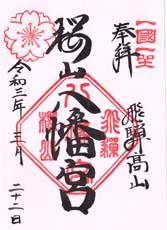 一國一聖
奉拝
飛騨高山
桜山八幡宮
飛騨
八
桜山
令和三年三月
二十二日